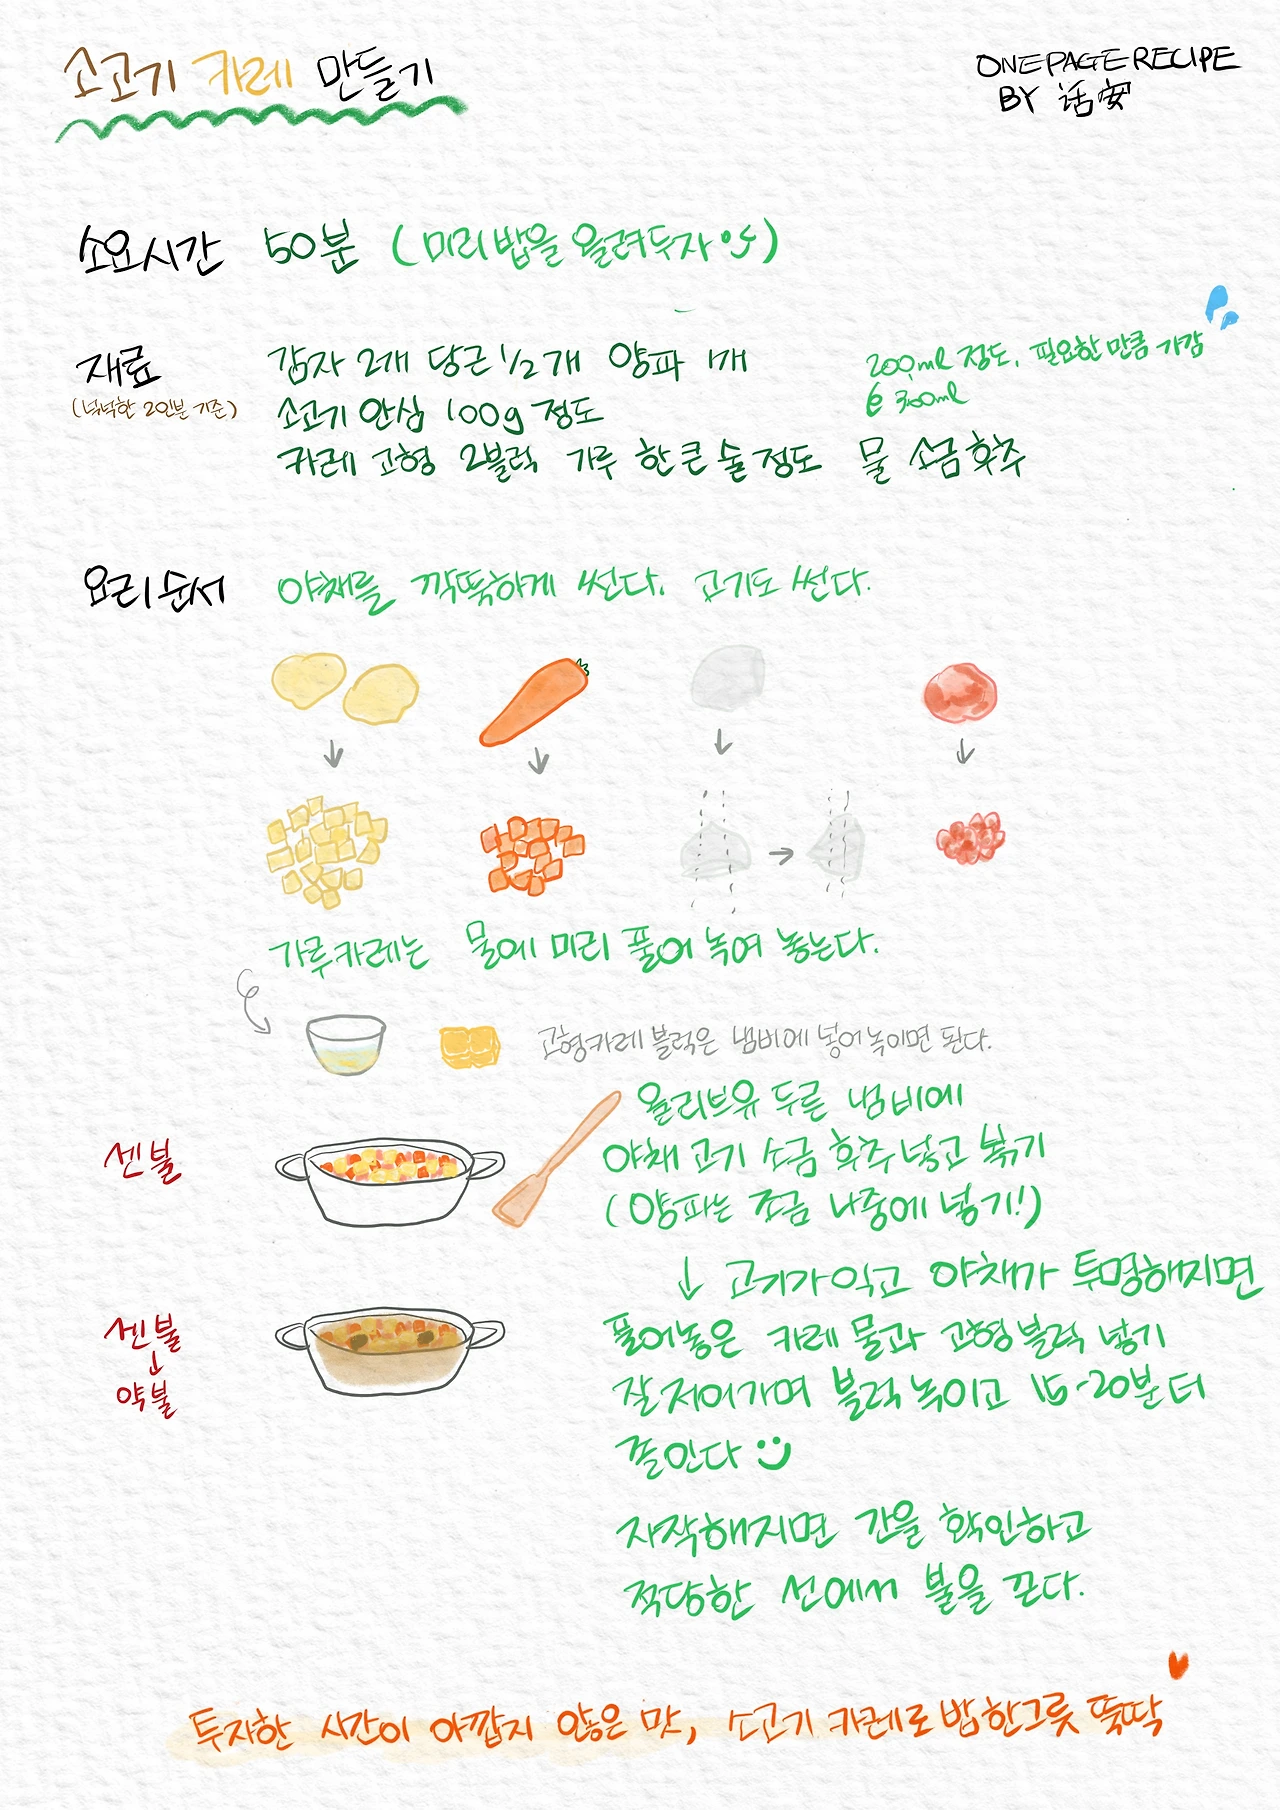 소고기 카레 만들기
ONE PAGE RECIPE
BY 话安
소요시간 50분 (미리 밥을 올려두자 :)
재료
(넉넉한 2인분 기준)
감자 2개 당근 1/2개 양파 1개
소고기 안심 100g 정도
카레 고형 2블럭 가루 한 큰 술 정도 물 소금 후추
200ml 정도, 필요한 만큼 가감
300ml
요리순서 야채를 깍뚝하게 썬다. 고기도 썬다.
가루카레는 물에 미리 풀어 녹여 놓는다.
고형카레 블럭은 냄비에 넣어 녹이면 된다.
센불
올리브유 두른 냄비에
야채 고기 소금 후추 넣고 볶기
(양파는 조금 나중에 넣기!)
↓ 고기가 익고 야채가 투명해지면
센불
↓
약불
풀어놓은 카레 물과 고형블럭 넣기
잘 저어가며 블럭 녹이고 15-20분 더
졸인다 :)
자작해지면 간을 확인하고
적당한 선에서 불을 끈다.
투자한 시간이 아깝지 않은 맛, 소고기 카레로 밥 한그릇 뚝딱